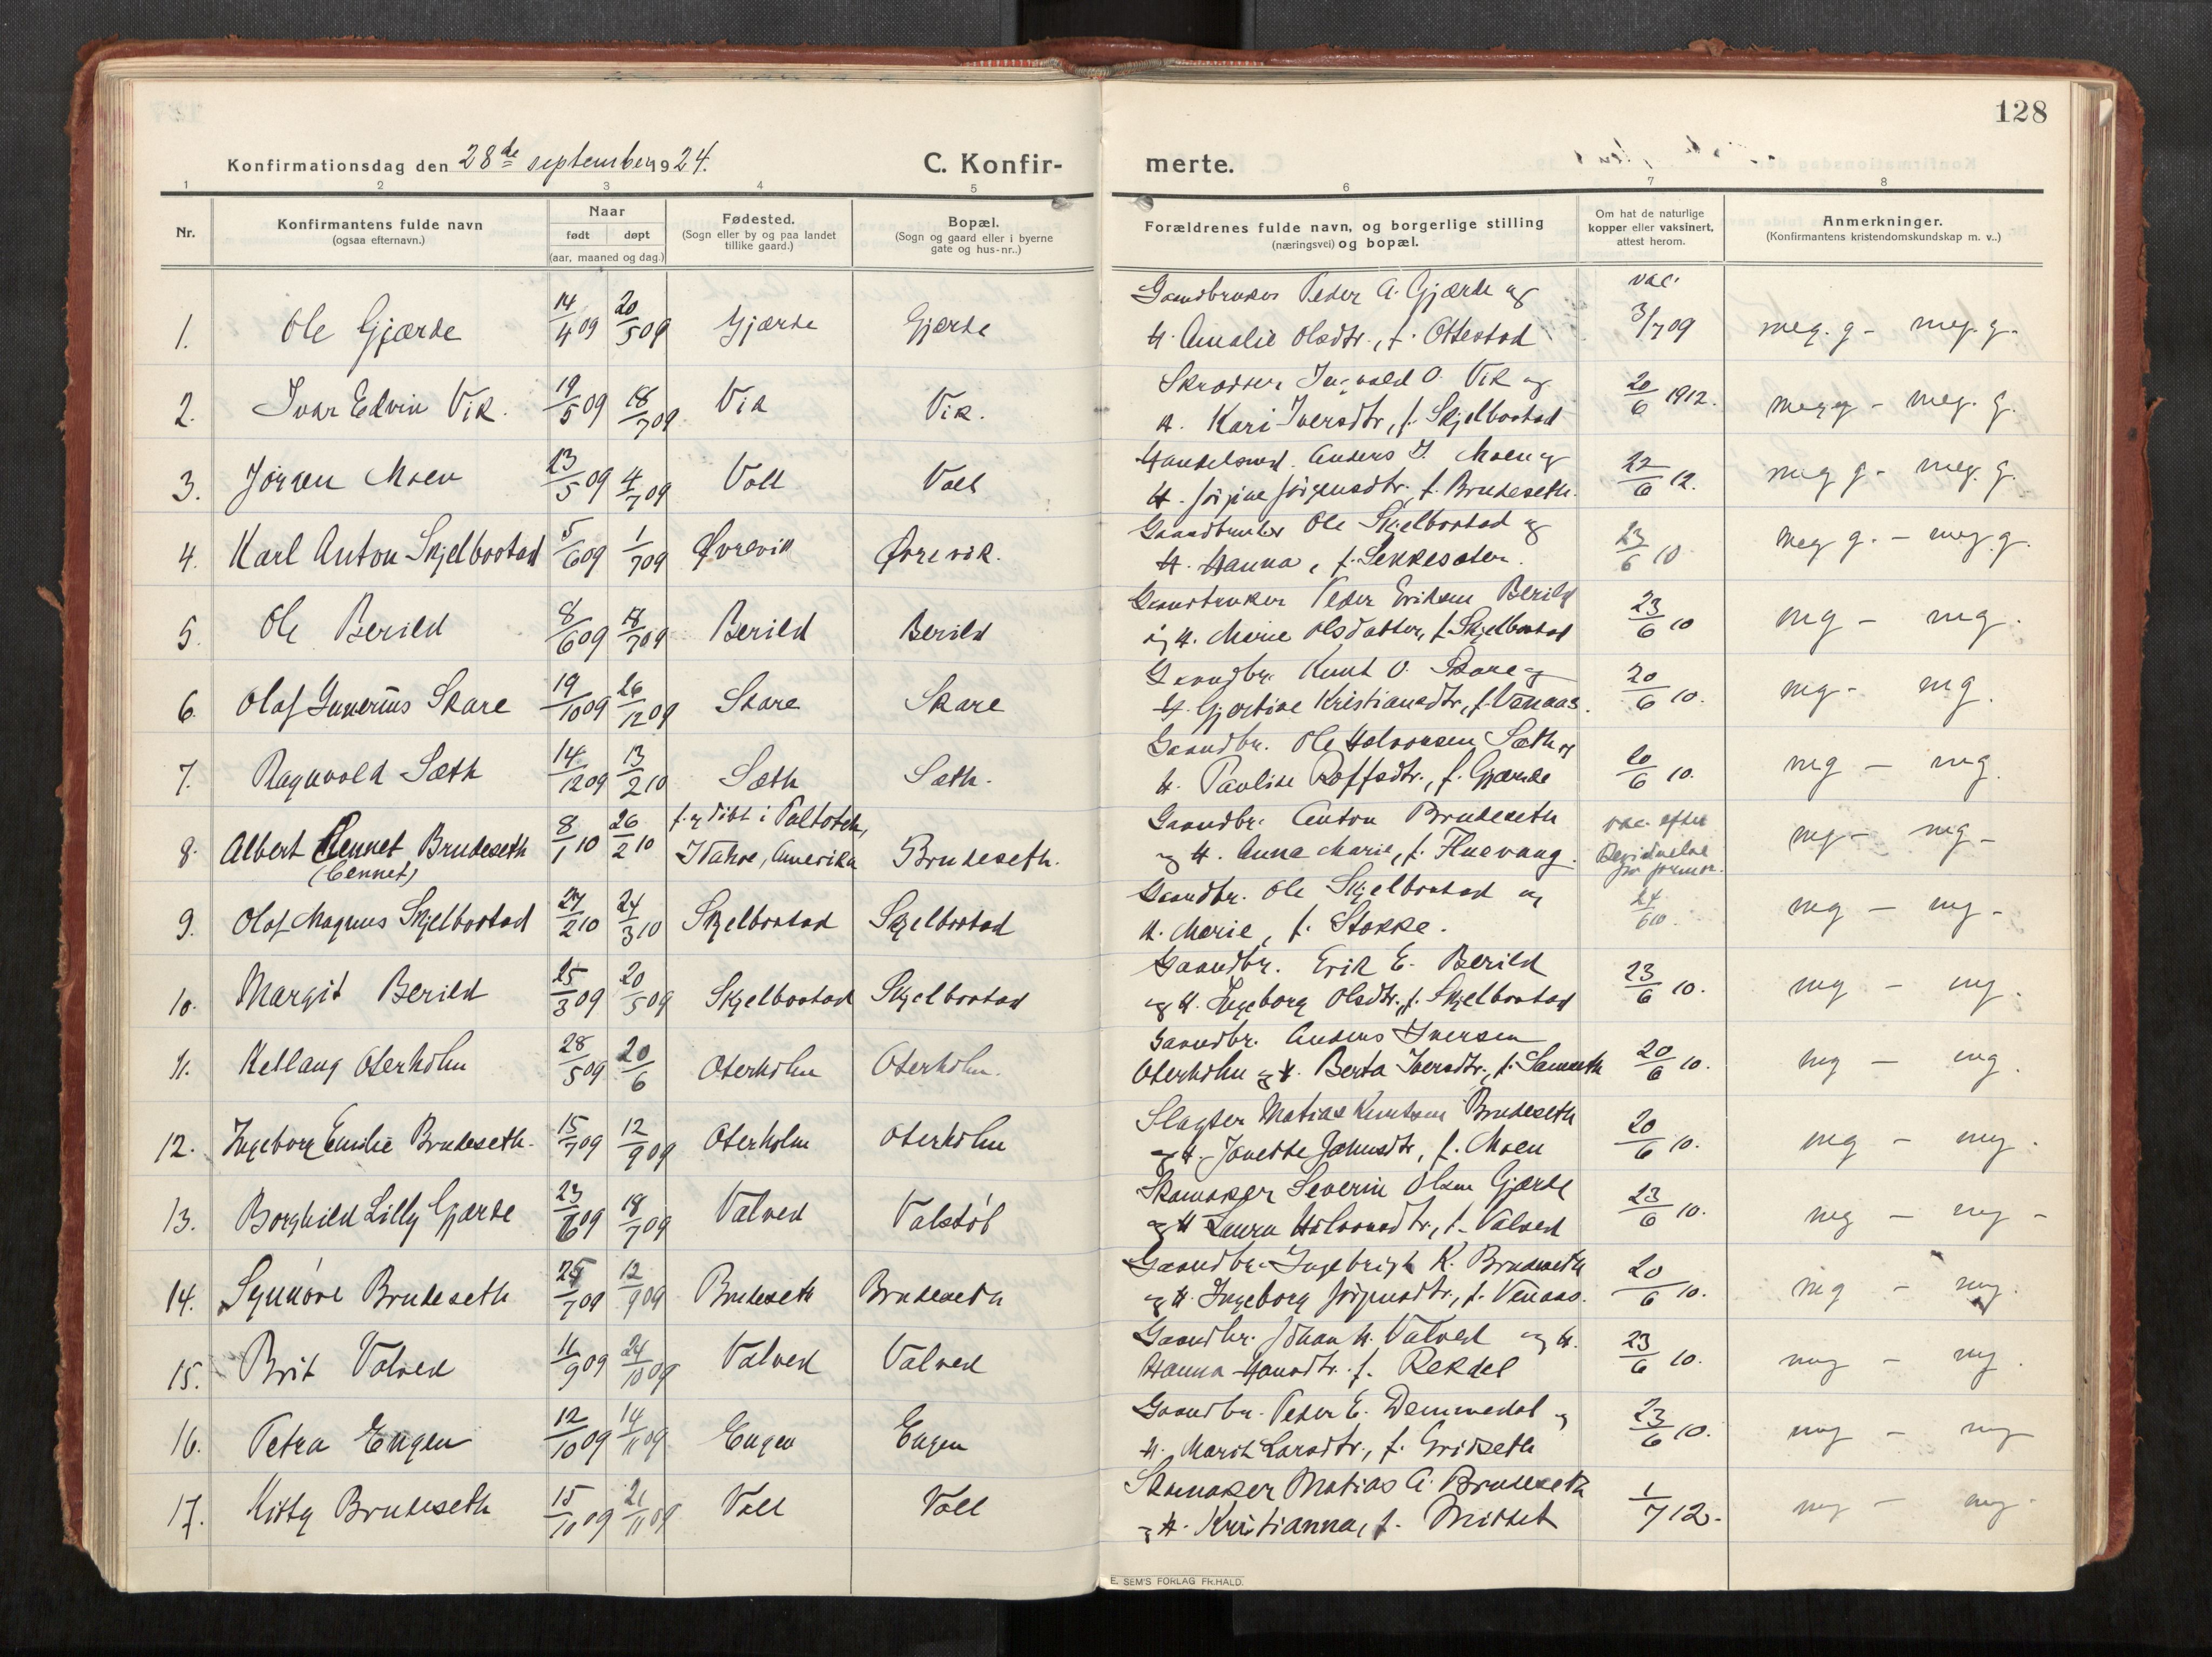 128
Konfirmationsdag den 28de september 1924.
C. Konfirmerte.
1 2 3 4 5 6 7 8
Nr.
Konfirmantens fulde navn
(ogsaa efternavn.)
Naar
født døpt
(aar, maaned og dag.)
Fødested.
(Sogn eller by og paa landet
tillike gaard.)
Bopæl.
(Sogn og gaard eller i byerne
gate og hus-nr..)
Forældrenes fulde navn, og borgerlige stilling
(næringsvei) og bopæl.
Om hat de naturlige
kopper eller vaksinert,
attest herom.
Anmerkninger.
(Konfirmantens kristendomskundskap m. v..)
Gaardbruker Peder A. Gjærde og vac.
1. Ole Gjærde 14/4 09 20/5 09 Gjærde Gjærde H. Amalie Olsdtr., f. Ottestad 3/7 09 meg. g - meg. g.
Skrædder Ingvald O. Vik og
2. Ivar Edvin Vik. 19/5 09 18/7 09 Vik Vik. H. Kari Iversdtr, f. Skjelbostad 20/6 1912. meg g - meg. g.
Handelsmd. Anders I. Moen og
3. Jørgen Moen 23/5 09 4/7 09 Voll Voll H. Jørgine Jørgensdtr. f. Brudeseth. 22/6 12. meg g - meg. g.
Gaardbruker Ole Skjelbostad og
4. Karl Anton Skjelbostad 5/6 09 1/7 09 Øvrevik Øvrevik. H. Hanna, f. Sekkesæter. 23/6 10 meg g. - meg g.
Gaardbruker Peder Eriksen Berild
5. Ole Berild 8/6 09 18/7 09 Berild Berild og H. Marie Olsdatter, f. Skjelbostad 23/6 10 mg - mg.
Gaardbr. Knut O. Skare og
6. Olaf Gunerius Skare 19/10 09 26/12 09 Skare Skare H. Gjertine Kristiansdtr, f. Venaas. 20/6 10. mg - mg.
Gaardbr. Ole Halvorsen Sæth og
7. Ragnvald Sæth 14/12 09 13/2 10 Sæth Sæth. H. Pauline Roffsdtr., f. Gjærde 20/6 10. mg - mg.
f. og døbt i Gaardbr. Anton Brudeseth vac. efter
8. Albert Bennet Brudeseth 8/1 10 26/2 10 Idahoe, Amerika Brudeseth. og H. Anna Marie, f. Fluevaag. mg - mg -
(Bennet)
Gaardbr. Ole Skjelbostad og
9. Olaf Magnus Skjelbostad 27/2 10 24/3 10 Skjelbostad Skjelbostad H. Marie, f. Stokke. 24/6 10. mg - mg -
Gaardbr. Erik E. Berild
10. Margit Berild 25/3 09 20/5 09 Skjelbostad Skjelbostad og H. Ingeborg Olsdtr., f. Skjelbostad 23/6 10. mg - mg.
Gaardbr. Anders Iversen
11. Kellaug Oterholm 28/5 09 20/6 Oterholm Oterholm. Oterholm og H. Berta Iversdtr., f. 20/6 10. mg - mg.
Slagter Matias Knutsen Brudeseth
12. Ingeborg Emilie Brudeseth. 15/7 09 12/9 09 Oterholm Oterholm og H. Janette Jahnsdtr, f. Moen 20/6 10. mg - mg.
Skomaker Severin Olsen Gjærde
13. Borghild Lilly Gjærde 23/6 09 18/7 09 Valved Valstøl og H Laura Halvorsdtr., f. Valved 23/6 10. mg - mg -
Gaardbr. Ingebrigt K. Brudeseth
14. Synnøve Brudeseth 25/7 09 12/9 09 Brudeseth Brudeseth og H. Ingeborg Jørgensdtr., f. Venaas. 20/6 10. mg - mg.
Gaardbr. Johan H. Valved og H.
15. Brit Valved 11/9 09 24/10 09 Valved Valved Hanna Hansdtr. f. Rekdal 23/6 10. mg - mg.
Gaardbr. Peder E. Dammedal og
16. Petra Engen 12/10 09 14/11 09 Engen Engen H. Marit Larsdtr., f. Gridseth 23/6 10. mg - mg
Skomaker Matias A. Brudeseth
17. Kitty Brudeseth 15/10 09 21/11 09 Voll Voll og H. Kristianna, f. Mittet 1/7 12. mg - mg.
E. SEM'S FORLAG FR.HALD.